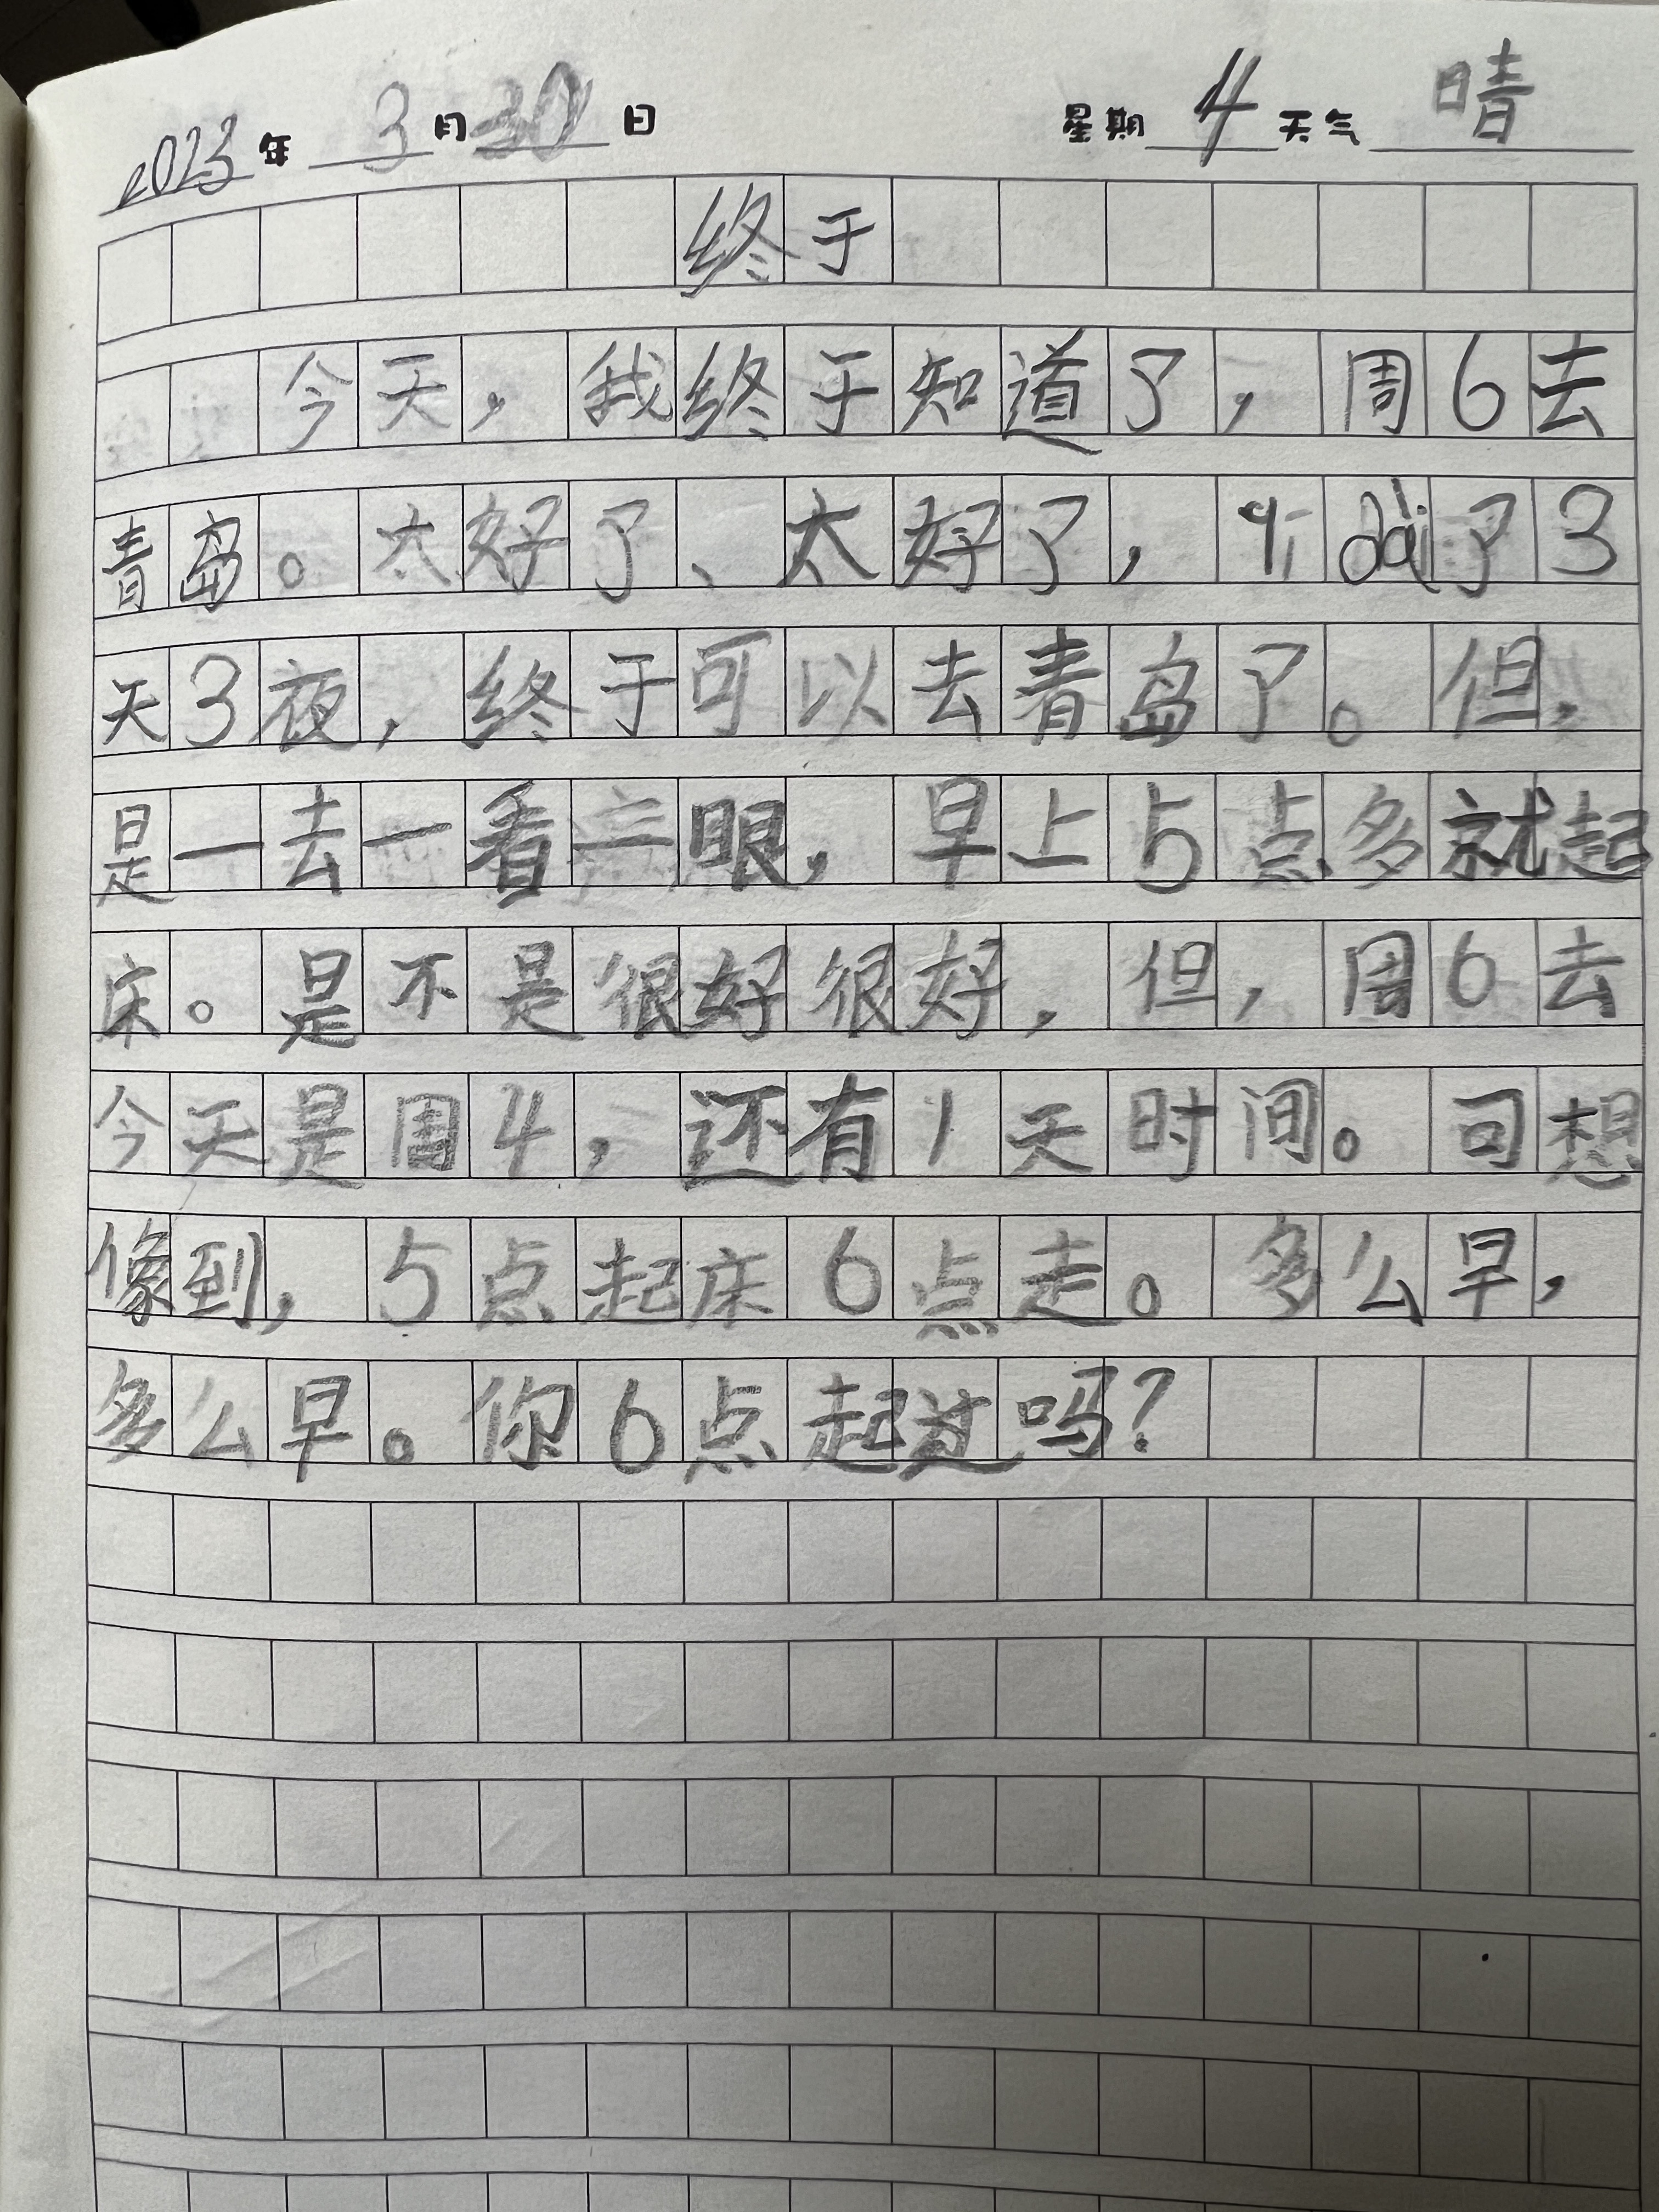 2023年 3月30日 星期 4 天气 晴
终于
今天，我终于知道了，周6去
青岛。太好了、太好了，qī dài了3
天3夜，终于可以去青岛了。但，
是一去一看三眼，早上5点多就起
床。是不是很好很好，但，周6去
今天是周4，还有1天时间。可想
像到，5点起床6点走。多么早，
多么早。你6点起过吗？